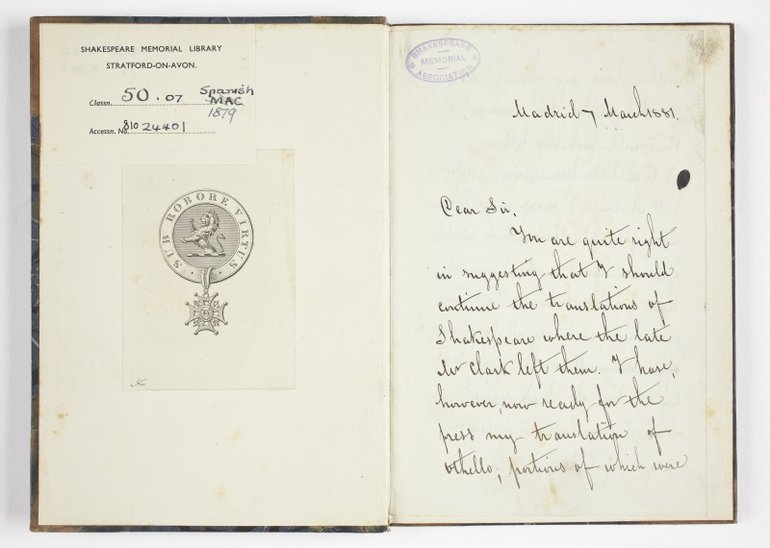 SHAKESPEARE MEMORIAL LIBRARY
STRATFORD-ON-AVON.
Classn. 50.07 Spanish
MAC
1879
Accessn. No. 24401
SUB ROBORE VIRTUS
SHAKESPEARE
MEMORIAL
ASSOCIATION
Madrid 7 March 1881.
Dear Sir,
You are quite right
in suggesting that I should
continue the translations of
Shakespeare where the late
Mr Clark left them. I have,
however, now ready for the
press my translation of
Othello, portions of which were